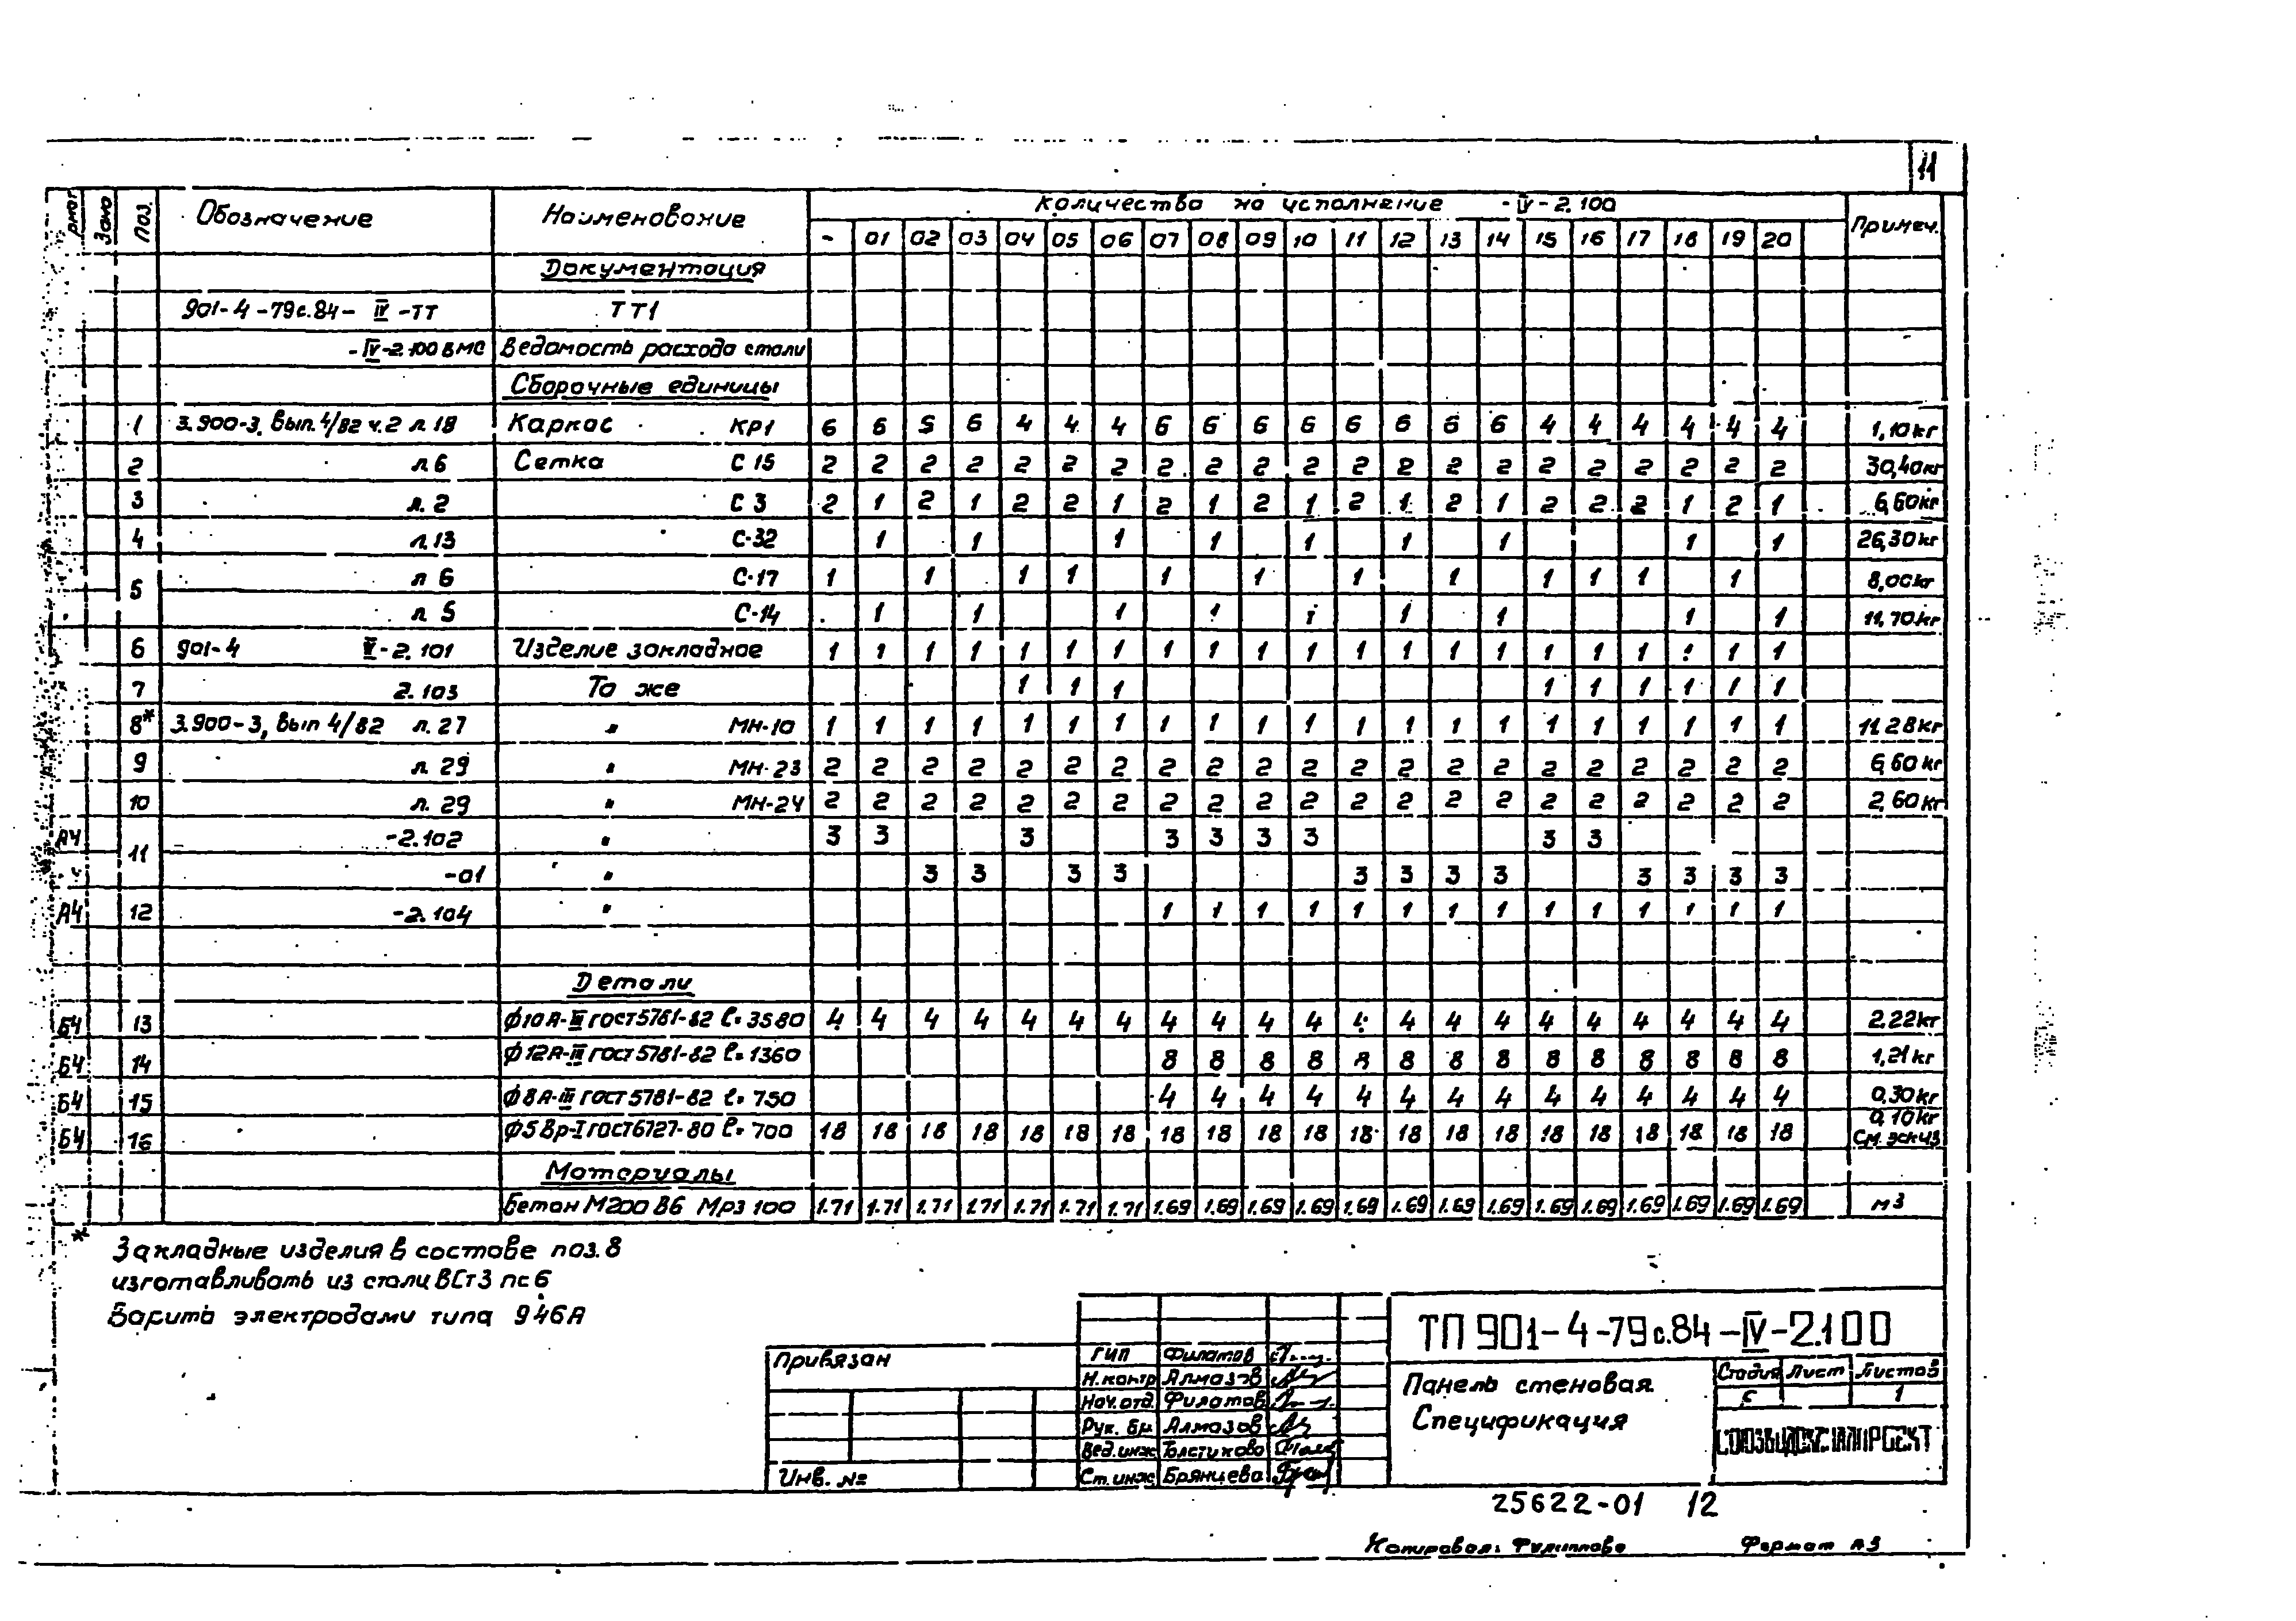 11
Формат Зона Поз. Обозначение Наименование Количество на исполнение -IV-2.100 Примеч.
- 01 02 03 04 05 06 07 08 09 10 11 12 13 14 15 16 17 18 19 20
Документация
901-4-79с.84-IV-ТТ ТТ1
-IV-2.100 ВМС Ведомость расхода стали
Сборочные единицы
1 3.900-3. Вып. 4/82 ч.2 л 18 Каркас КР1 6 6 5 6 4 4 4 6 6 6 6 6 6 6 6 4 4 4 4 4 4 1,10кг
2 л 6 Сетка С 15 2 2 2 2 2 2 2 2 2 2 2 2 2 2 2 2 2 2 2 2 2 30,40кг
3 л. 2 С 3 2 1 2 1 2 2 1 2 1 2 1 2 1 2 1 2 2 2 1 2 1 6,60кг
4 л.13 С-32 1 1 1 1 1 1 1 1 1 26,30кг
5 л 6 С-17 1 1 1 1 1 1 1 1 1 1 1 1 8,00кг
л 5 С-14 1 1 1 1 1 1 1 1 1 11,70кг
6 901-4 IV-2.101 Изделие закладное 1 1 1 1 1 1 1 1 1 1 1 1 1 1 1 1 1 1 1 1 1
7 2.103 То же 1 1 1 1 1 1 1 1 1
8* 3.900-3, вып 4/82 л. 27 " МН-10 1 1 1 1 1 1 1 1 1 1 1 1 1 1 1 1 1 1 1 1 1 11.28кг
9 л. 29 " МН-23 2 2 2 2 2 2 2 2 2 2 2 2 2 2 2 2 2 2 2 2 2 6,60 кг
10 л. 29 " МН-24 2 2 2 2 2 2 2 2 2 2 2 2 2 2 2 2 2 2 2 2 2 2,60кг
А4 11 -2.102 " 3 3 3 3 3 3 3 3 3
-01 " 3 3 3 3 3 3 3 3 3 3 3 3
А4 12 -2.104 " 1 1 1 1 1 1 1 1 1 1 1 1 1 1
Детали
БЧ 13 Ф10А-III ГОСТ 5781-82 l=3580 4 4 4 4 4 4 4 4 4 4 4 4 4 4 4 4 4 4 4 4 4 2.22кг
БЧ 14 Ф12А-III ГОСТ 5781-82 l=1360 8 8 8 8 8 8 8 8 8 8 8 8 8 8 1,21кг
БЧ 15 Ф8А-III ГОСТ 5781-82 l=750 4 4 4 4 4 4 4 4 4 4 4 4 4 4 0,30кг
БЧ 16 Ф5Вр-I ГОСТ 6727-80 l=700 18 18 18 18 18 18 18 18 18 18 18 18 18 18 18 18 18 18 18 18 18 0,10кг См. эскиз
Материалы
Бетон М200 В6 Мрз 100 1.71 1.71 1.71 1.71 1.71 1.71 1.71 1.69 1.69 1.69 1.69 1.69 1.69 1.69 1.69 1.69 1.69 1.69 1.69 1.69 1.69 м3
* Закладные изделия в составе поз. 8
изготавливать из стали ВСт3 пс 6
Варить электродами типа Э46А
ТП 901-4-79с.84-IV-2.100
Привязан
Инв. №
ГИП Филатов
Н.контр Алмазов
Нач.отд. Филатов
Рук. бр. Алмазов
Вед.инж Толстикова
Ст.инж Брянцева
Панель стеновая
Спецификация
Стадия Лист Листов
1
СОЮЗВОДОКАНАЛПРОЕКТ
25622-01 12
Копировал: Филиппова Формат А3